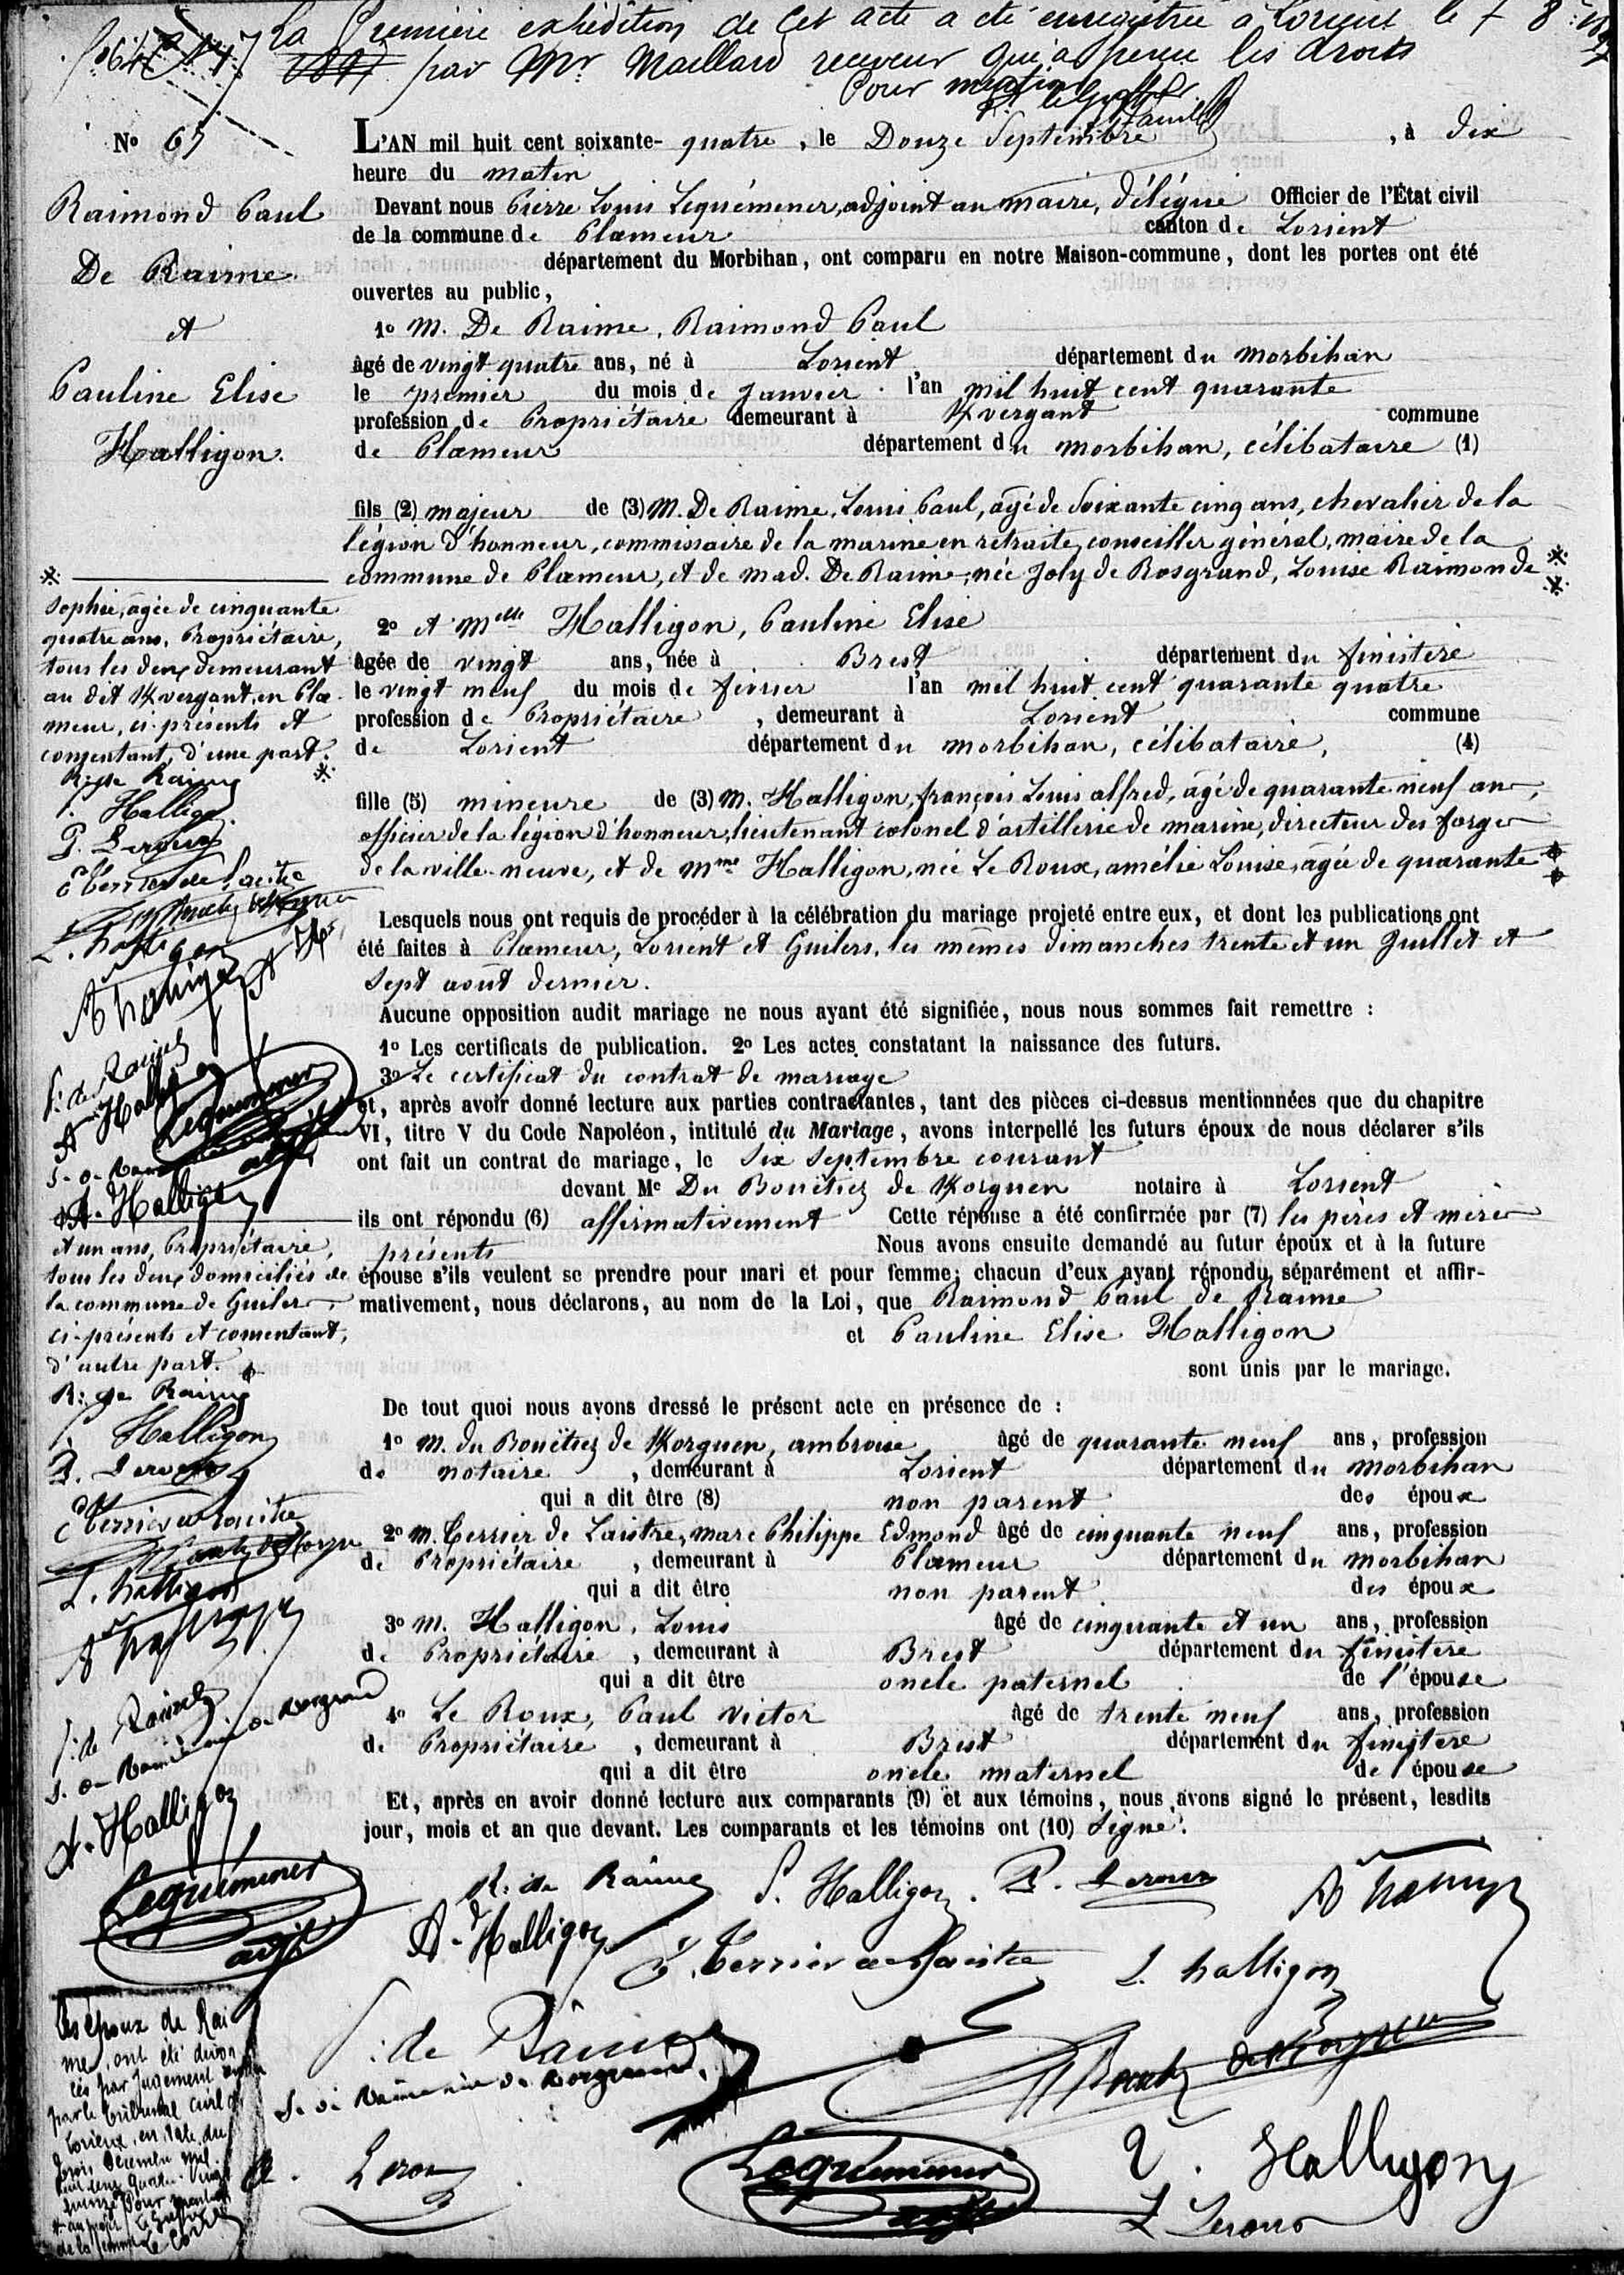 La Première expédition de cet acte a été enregistrée à Lorient le 7 8bre
par Mr Maillard receveur qui a perçu les droits
Pour mention
No 67
Raimond Paul
De Raime
et
Pauline Elise
Halligon.
L'AN mil huit cent soixante- quatre, le Douze Septembre, à dix
heure du matin
Devant nous Pierre Louis Lequémener, adjoint au maire, délégué Officier de l'État civil
de la commune de Plœmeur canton de Lorient
département du Morbihan, ont comparu en notre Maison-commune, dont les portes ont été
ouvertes au public,
1o M. De Raime, Raimond Paul
âgé de vingt quatre ans, né à Lorient département du Morbihan
le premier du mois de Janvier l'an mil huit cent quarante
profession de Propriétaire demeurant à Kvergant commune
de Plœmeur département du Morbihan, célibataire (1)
fils (2) majeur de (3) M. De Raime, Louis Paul, âgé de Soixante cinq ans, chevalier de la
légion d'honneur, commissaire de la marine en retraite, conseiller général, maire de la
commune de Plœmeur, et de mad. De Raime, née Joly de Rosgrand, Louise Raimonde
Sophie, âgée de cinquante
quatre ans, Propriétaire,
tous les deux demeurant
au dit Kvergant, en Plœ-
meur, ci-présents et
consentant, d'une part.
R. de Raime
P. Halligon
P. Leroux
E Terrier de Laistre
L. halligon
A. Halligon
Lequemener
adjt
A. Halligon
2o et Melle Halligon, Pauline Elise
âgée de vingt ans, née à Brest département du finistère
le vingt neuf du mois de février l'an mil huit cent quarante quatre
profession de Propriétaire, demeurant à Lorient commune
de Lorient département du morbihan, célibataire, (4)
fille (5) mineure de (3) M. Halligon, françois Louis alfred, âgé de quarante neuf ans,
officier de la légion d'honneur, lieutenant colonel d'artillerie de marine, directeur des forges
de la ville-neuve, et de Mme Halligon, née Le Roux, amélie Louise, âgée de quarante
Lesquels nous ont requis de procéder à la célébration du mariage projeté entre eux, et dont les publications ont
été faites à Plœmeur, Lorient et Guilers, les mêmes dimanches trente et un Juillet et
Sept août dernier.
Aucune opposition audit mariage ne nous ayant été signifiée, nous nous sommes fait remettre :
1o Les certificats de publication. 2o Les actes constatant la naissance des futurs.
3o Le certificat du contrat de mariage
et, après avoir donné lecture aux parties contractantes, tant des pièces ci-dessus mentionnées que du chapitre
VI, titre V du Code Napoléon, intitulé du Mariage, avons interpellé les futurs époux de nous déclarer s'ils
ont fait un contrat de mariage, le Six Septembre courant
devant Me Du Bouëtiez de Korguen notaire à Lorient
ils ont répondu (6) affirmativement Cette réponse a été confirmée par (7) les pères et mères
présents Nous avons ensuite demandé au futur époux et à la future
épouse s'ils veulent se prendre pour mari et pour femme; chacun d'eux ayant répondu séparément et affir-
mativement, nous déclarons, au nom de la Loi, que Raimond Paul de Raime
et Pauline Elise Halligon
sont unis par le mariage.
et un ans, Propriétaire,
tous les deux domiciliés de
la commune de Guilers,
ci-présents et consentant,
d'autre part.
R. de Raime
P. Halligon
P. Leroux
E Terrier de Laistre
L. halligon
A. Halligon
Lequémener
adjt
De tout quoi nous avons dressé le présent acte en présence de :
1o M. du Bouëtiez de Korguen, ambroise âgé de quarante neuf ans, profession
de notaire, demeurant à Lorient département du Morbihan
qui a dit être (8) non parent des époux
2o M. Terrier de Laistre, Marc Philippe Edmond âgé de cinquante neuf ans, profession
de Propriétaire, demeurant à Plœmeur département du Morbihan
qui a dit être non parent des époux
3o M. Halligon, Louis âgé de cinquante et un ans, profession
de Propriétaire, demeurant à Brest département du finistère
qui a dit être oncle paternel de l'épouse
4o Le Roux, Paul Victor âgé de trente neuf ans, profession
de Propriétaire, demeurant à Brest département du finistère
qui a dit être oncle maternel de l'épouse
Et, après en avoir donné lecture aux comparants (9) et aux témoins, nous avons signé le présent, lesdits
jour, mois et an que devant. Les comparants et les témoins ont (10) Signé.
R. de Raime P. Halligon. P. Leroux
A. Halligon E. Terrier de Laistre L. halligon
de Raime
Leroux Lequémener adjt Halligon
L Leroux
Les époux de Rai
me, ont été divor
cés par jugement rendu
par le tribunal civil de
Lorient, en date du
trois Décembre mil
huit cent quatre-vingt